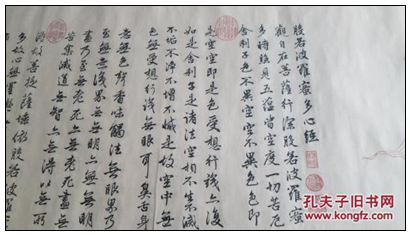 般若波羅蜜多心經
觀自在菩薩行深般若波羅蜜
多時照見五蘊皆空度一切苦厄
舍利子色不異空空不異色色即
是空空即是色受想行識亦復
如是舍利子是諸法空相不生不滅
不垢不淨不增不減是故空中無
色無受想行識無眼耳鼻舌身
意無色聲香味觸法無眼界乃
至無意識界無無明亦無無明
盡乃至無老死亦無老死盡無
苦集滅道無智亦無得以無所
得故菩提薩埵依般若波羅蜜
多故心無罣
孔夫子旧书网
kongfz.com